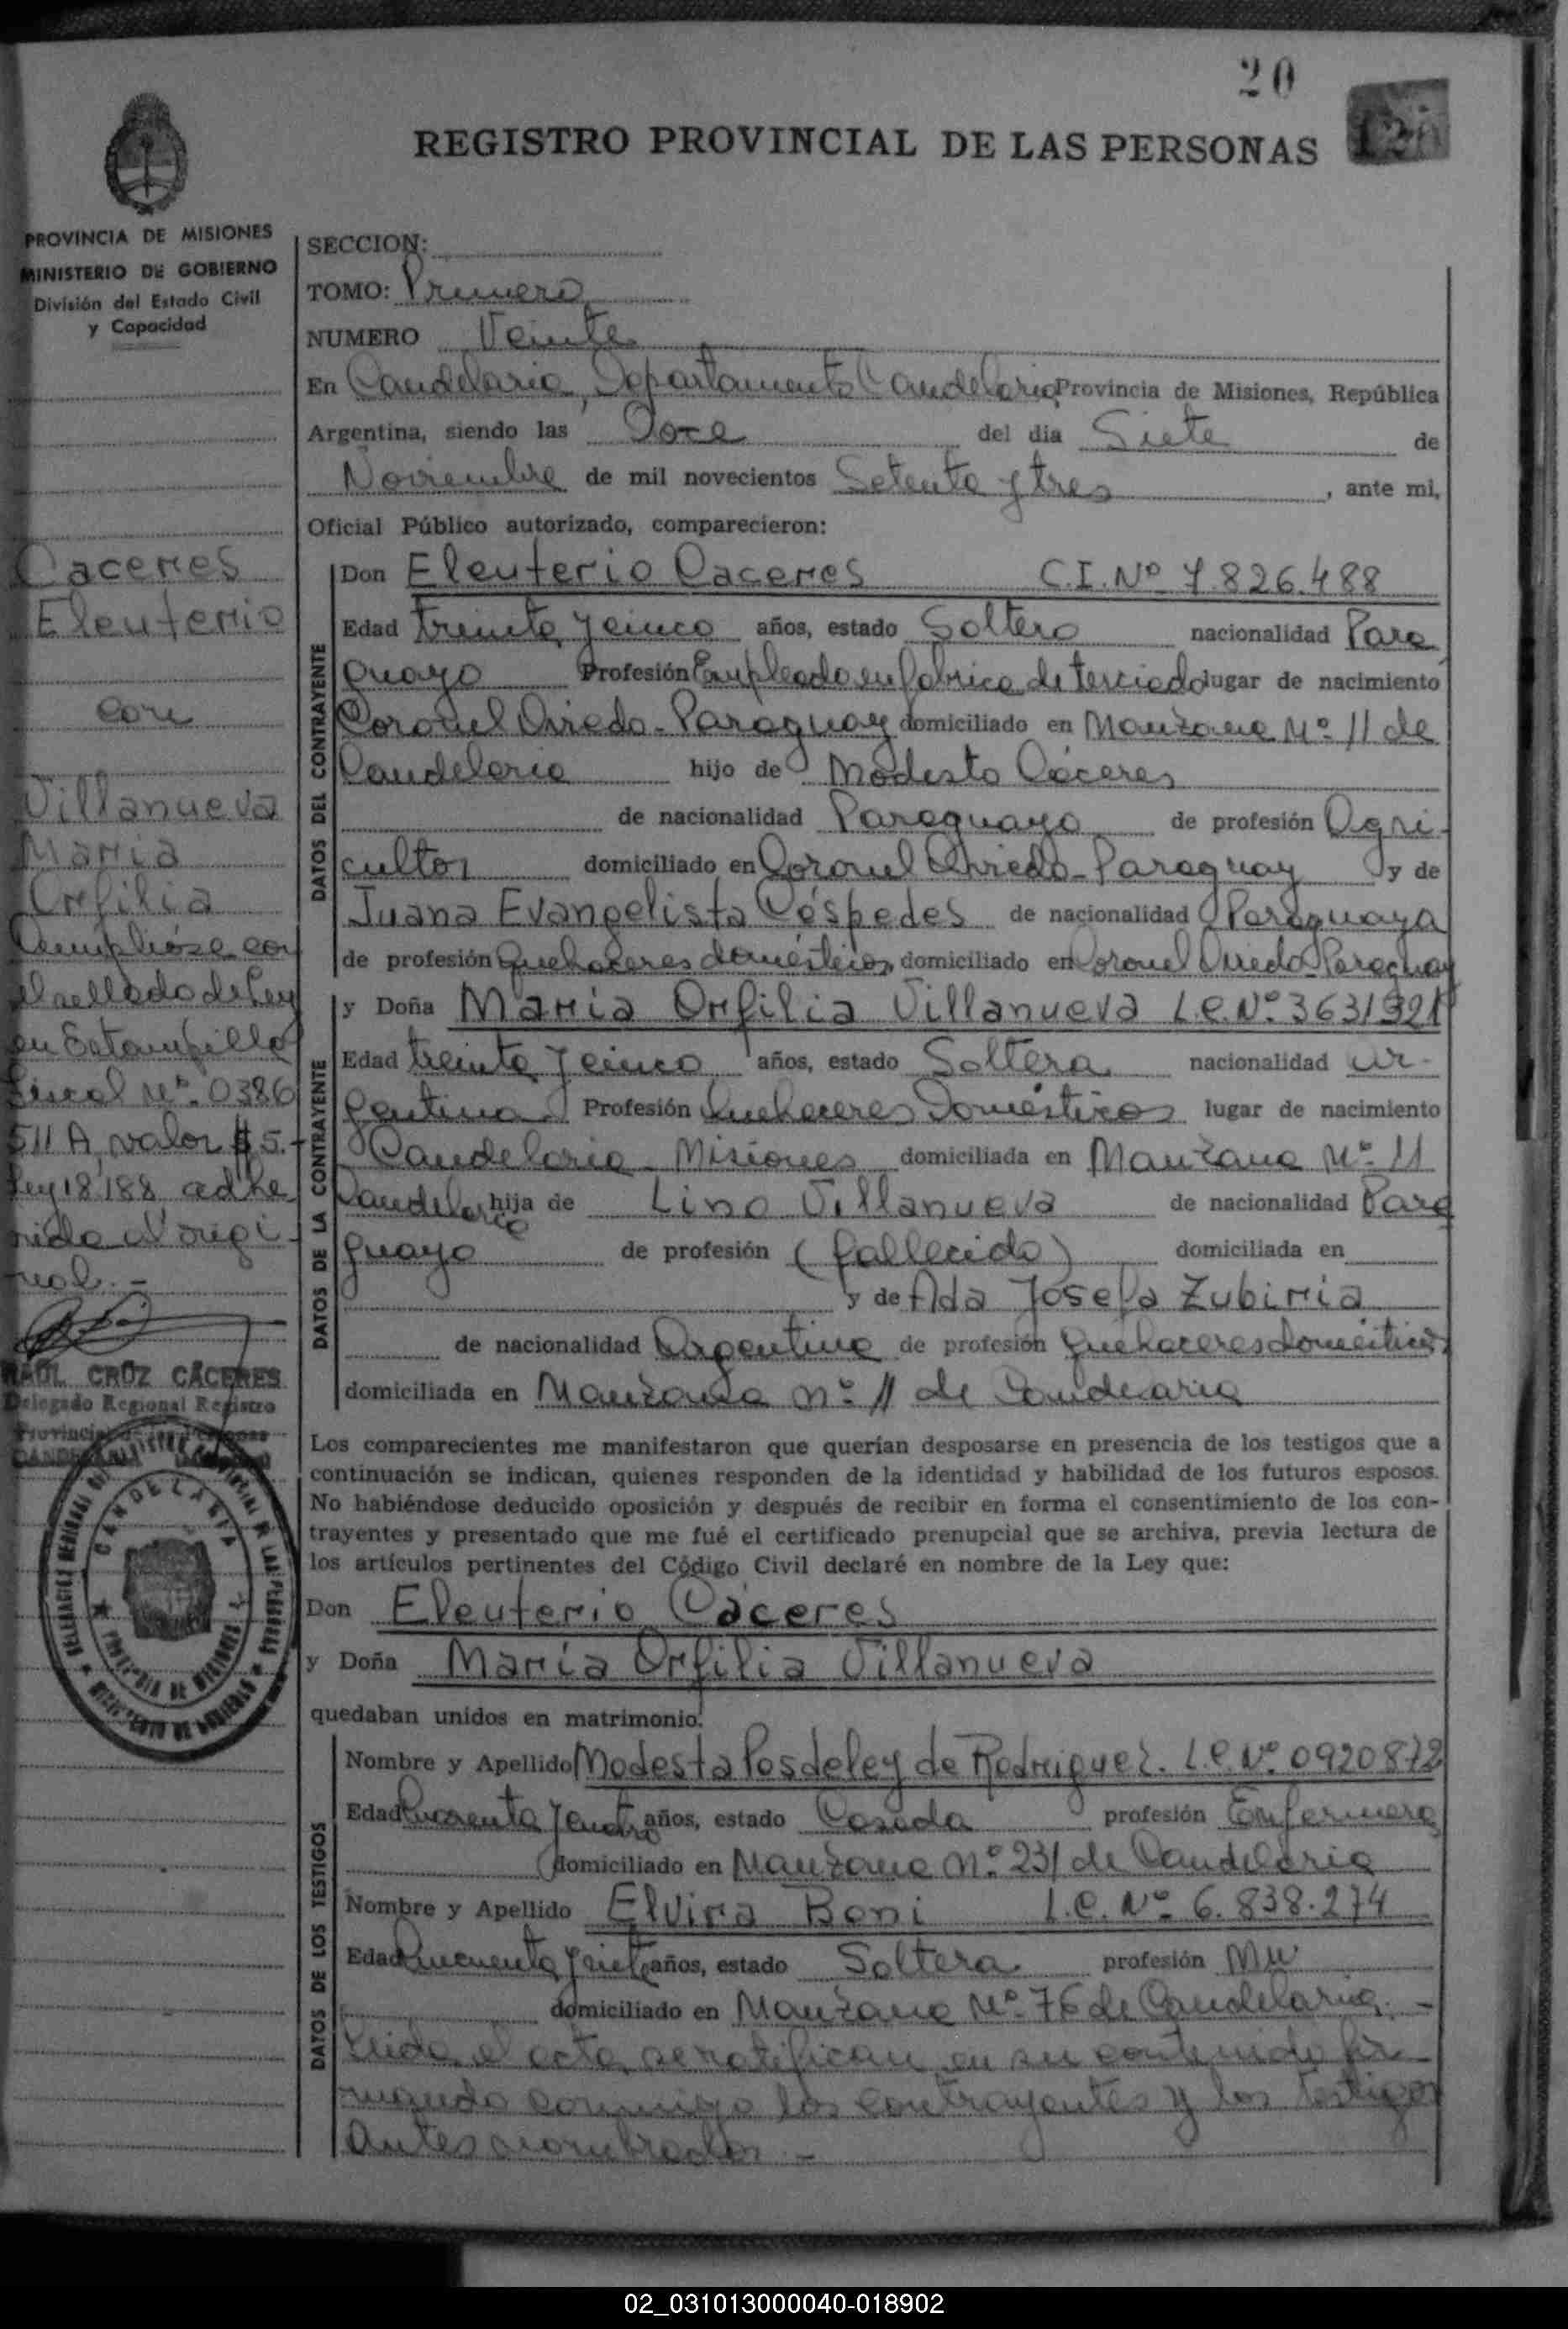 20
REGISTRO PROVINCIAL DE LAS PERSONAS
PROVINCIA DE MISIONES
MINISTERIO DE GOBIERNO
División del Estado Civil
y Capacidad
Caceres
Eleuterio
con
Villanueva
Maria
Orfilia
Cumplióse con
el sellado de Ley
en Estampilla
Fiscal Nº 0386
511 A, valor $ 5.-
Ley 18.188, adhe
rida al origi-
nal.-
RAUL CRUZ CÁCERES
Delegado Regional Registro
Provincial de las Personas
CANDELARIA
CANDELARIA
PROVINCIA DE MISIONES
SECCION:
TOMO: Primero
NUMERO Veinte
En Candelaria, Departamento Candelaria Provincia de Misiones, República
Argentina, siendo las Doce del dia Siete de
Noviembre de mil novecientos Setenta y tres, ante mi,
Oficial Público autorizado, comparecieron:
DATOS DEL CONTRAYENTE
Don Eleuterio Caceres C.I. Nº 7.826.488
Edad treinta y cinco años, estado Soltero nacionalidad Para
guayo Profesión Empleado en fabrica de terciado lugar de nacimiento
Coronel Oviedo-Paraguay domiciliado en Manzana Nº 11 de
Candelaria hijo de Modesto Cáceres
de nacionalidad Paraguaya de profesión Agri-
cultor domiciliado en Coronel Oviedo-Paraguay y de
Juana Evangelista Céspedes de nacionalidad Paraguaya
de profesión Quehaceres domésticos, domiciliado en Coronel Oviedo-Paraguay
DATOS DE LA CONTRAYENTE
y Doña María Orfilia Villanueva L.C. Nº 3631321
Edad treinta y cinco años, estado Soltera nacionalidad ar-
gentina Profesión Quehaceres Domésticos lugar de nacimiento
Candelaria-Misiones domiciliada en Manzana Nº 11
Candelaria hija de Lino Villanueva de nacionalidad Para
guayo de profesión (fallecido) domiciliada en
y de Ada Josefa Zubiria
de nacionalidad Argentina de profesión Quehaceres domésticos
domiciliada en Manzana nº 11 de Candelaria
Los comparecientes me manifestaron que querían desposarse en presencia de los testigos que a
continuación se indican, quienes responden de la identidad y habilidad de los futuros esposos.
No habiéndose deducido oposición y después de recibir en forma el consentimiento de los con-
trayentes y presentado que me fué el certificado prenupcial que se archiva, previa lectura de
los artículos pertinentes del Código Civil declaré en nombre de la Ley que:
Don Eleuterio Cáceres
y Doña María Orfilia Villanueva
quedaban unidos en matrimonio.
DATOS DE LOS TESTIGOS
Nombre y Apellido Modesta Posdeley de Rodriguez. L.C. Nº 0920872
Edad Cuarenta y cuatro años, estado Casada profesión Enfermera
domiciliado en Manzana nº 231 de Candelaria
Nombre y Apellido Elvira Boni L.C. Nº 6.838.274
Edad Cincuenta y siete años, estado Soltera profesión
domiciliado en Manzana Nº 76 de Candelaria.-
Leida el acta se ratifican en su contenido fir-
mando conmigo los contrayentes y los testigos
antes nombrados.-
02_031013000040-018902